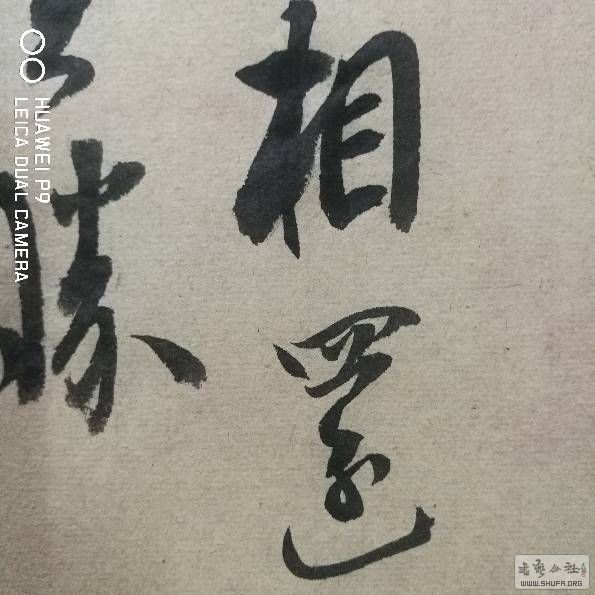 相還
勝
HUAWEI P9
LEICA DUAL CAMERA
公社
WWW.SHUFA.ORG